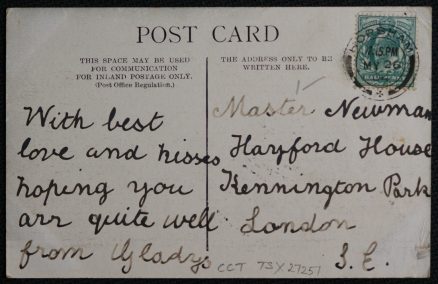 POST CARD
THIS SPACE MAY BE USED
FOR COMMUNICATION
FOR INLAND POSTAGE ONLY.
(Post Office Regulation.)
THE ADDRESS ONLY TO BE
WRITTEN HERE.
HORSHAM
4.15PM
MY 26
With best
love and kisses
hoping you
arr quite well
from Gladys
Master Newman
Hayford House
Kennington Park
London
S.E.
CCT TSX27251